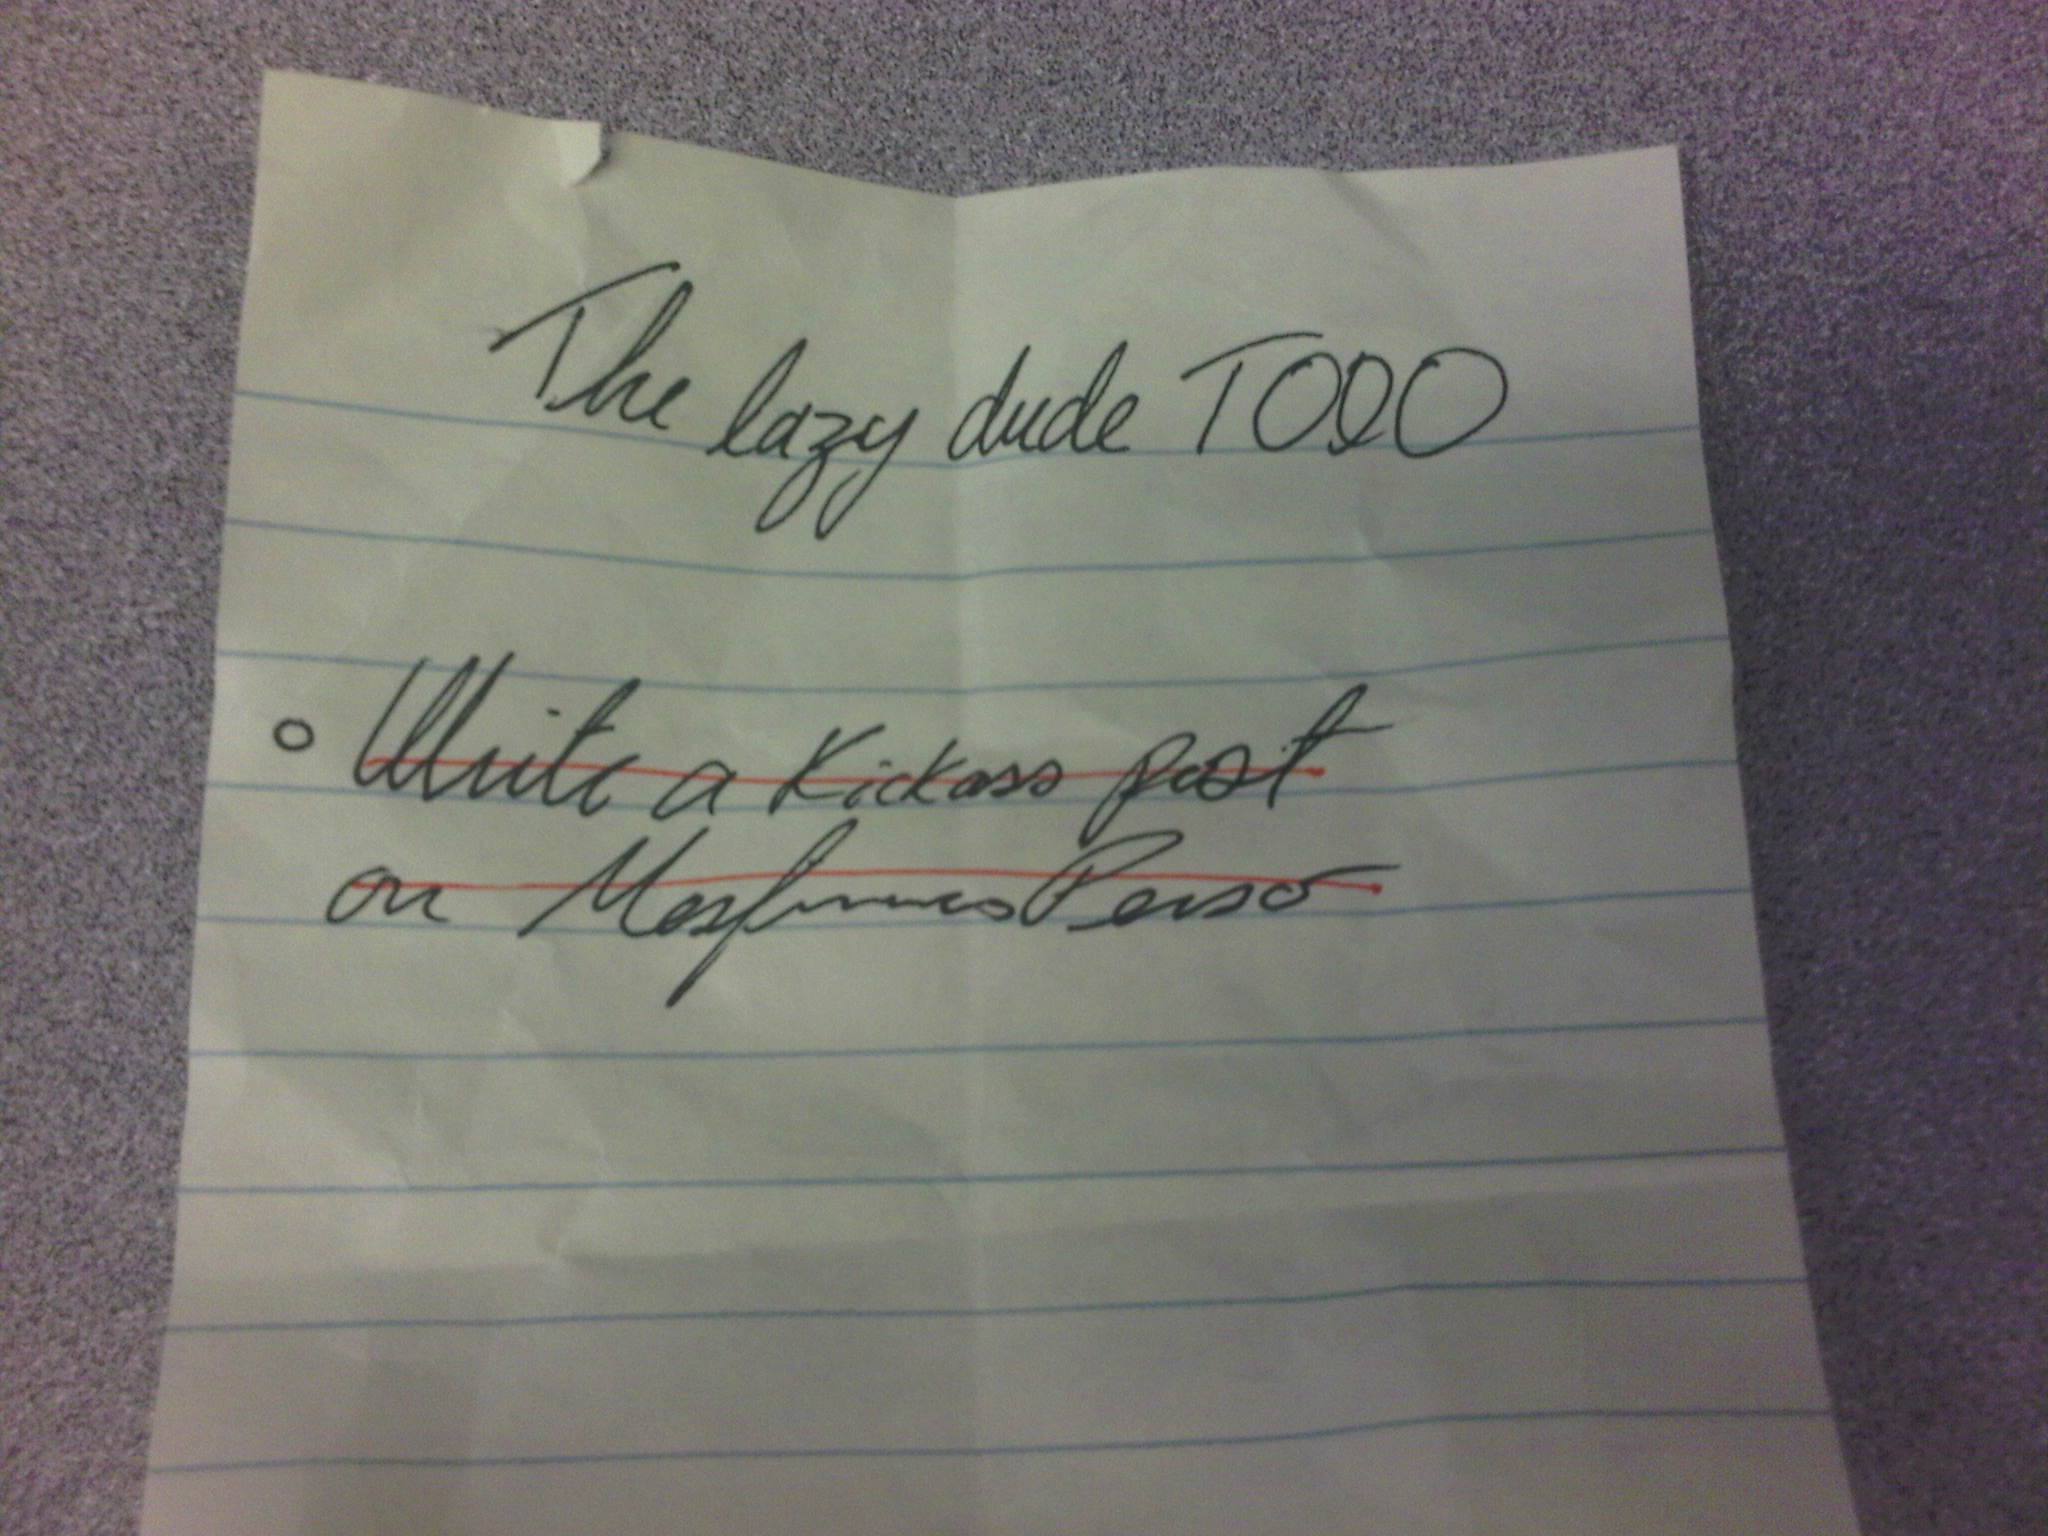 The lazy dude TODO
o Write a Kickass post
on MesfinancesPerso